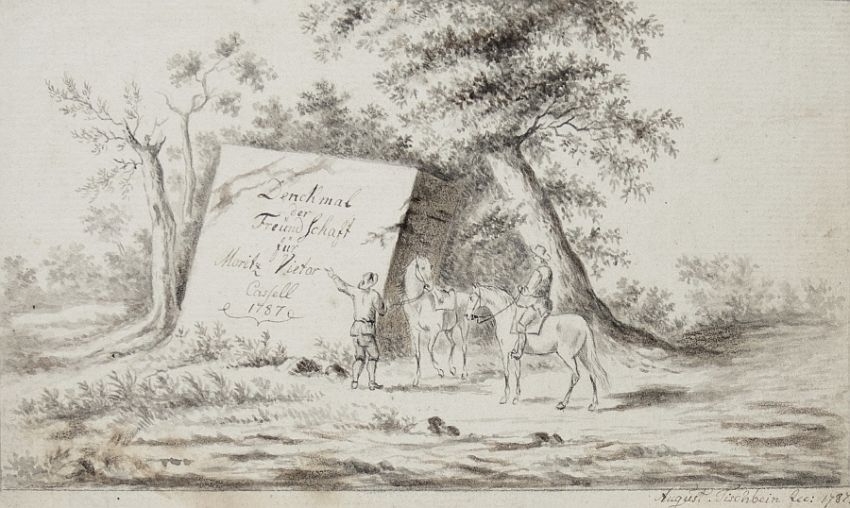 Denckmal
der
Freündschaft
für
Moritz Vietor
Cassell
1787
August. Tischbein fec: 1787.